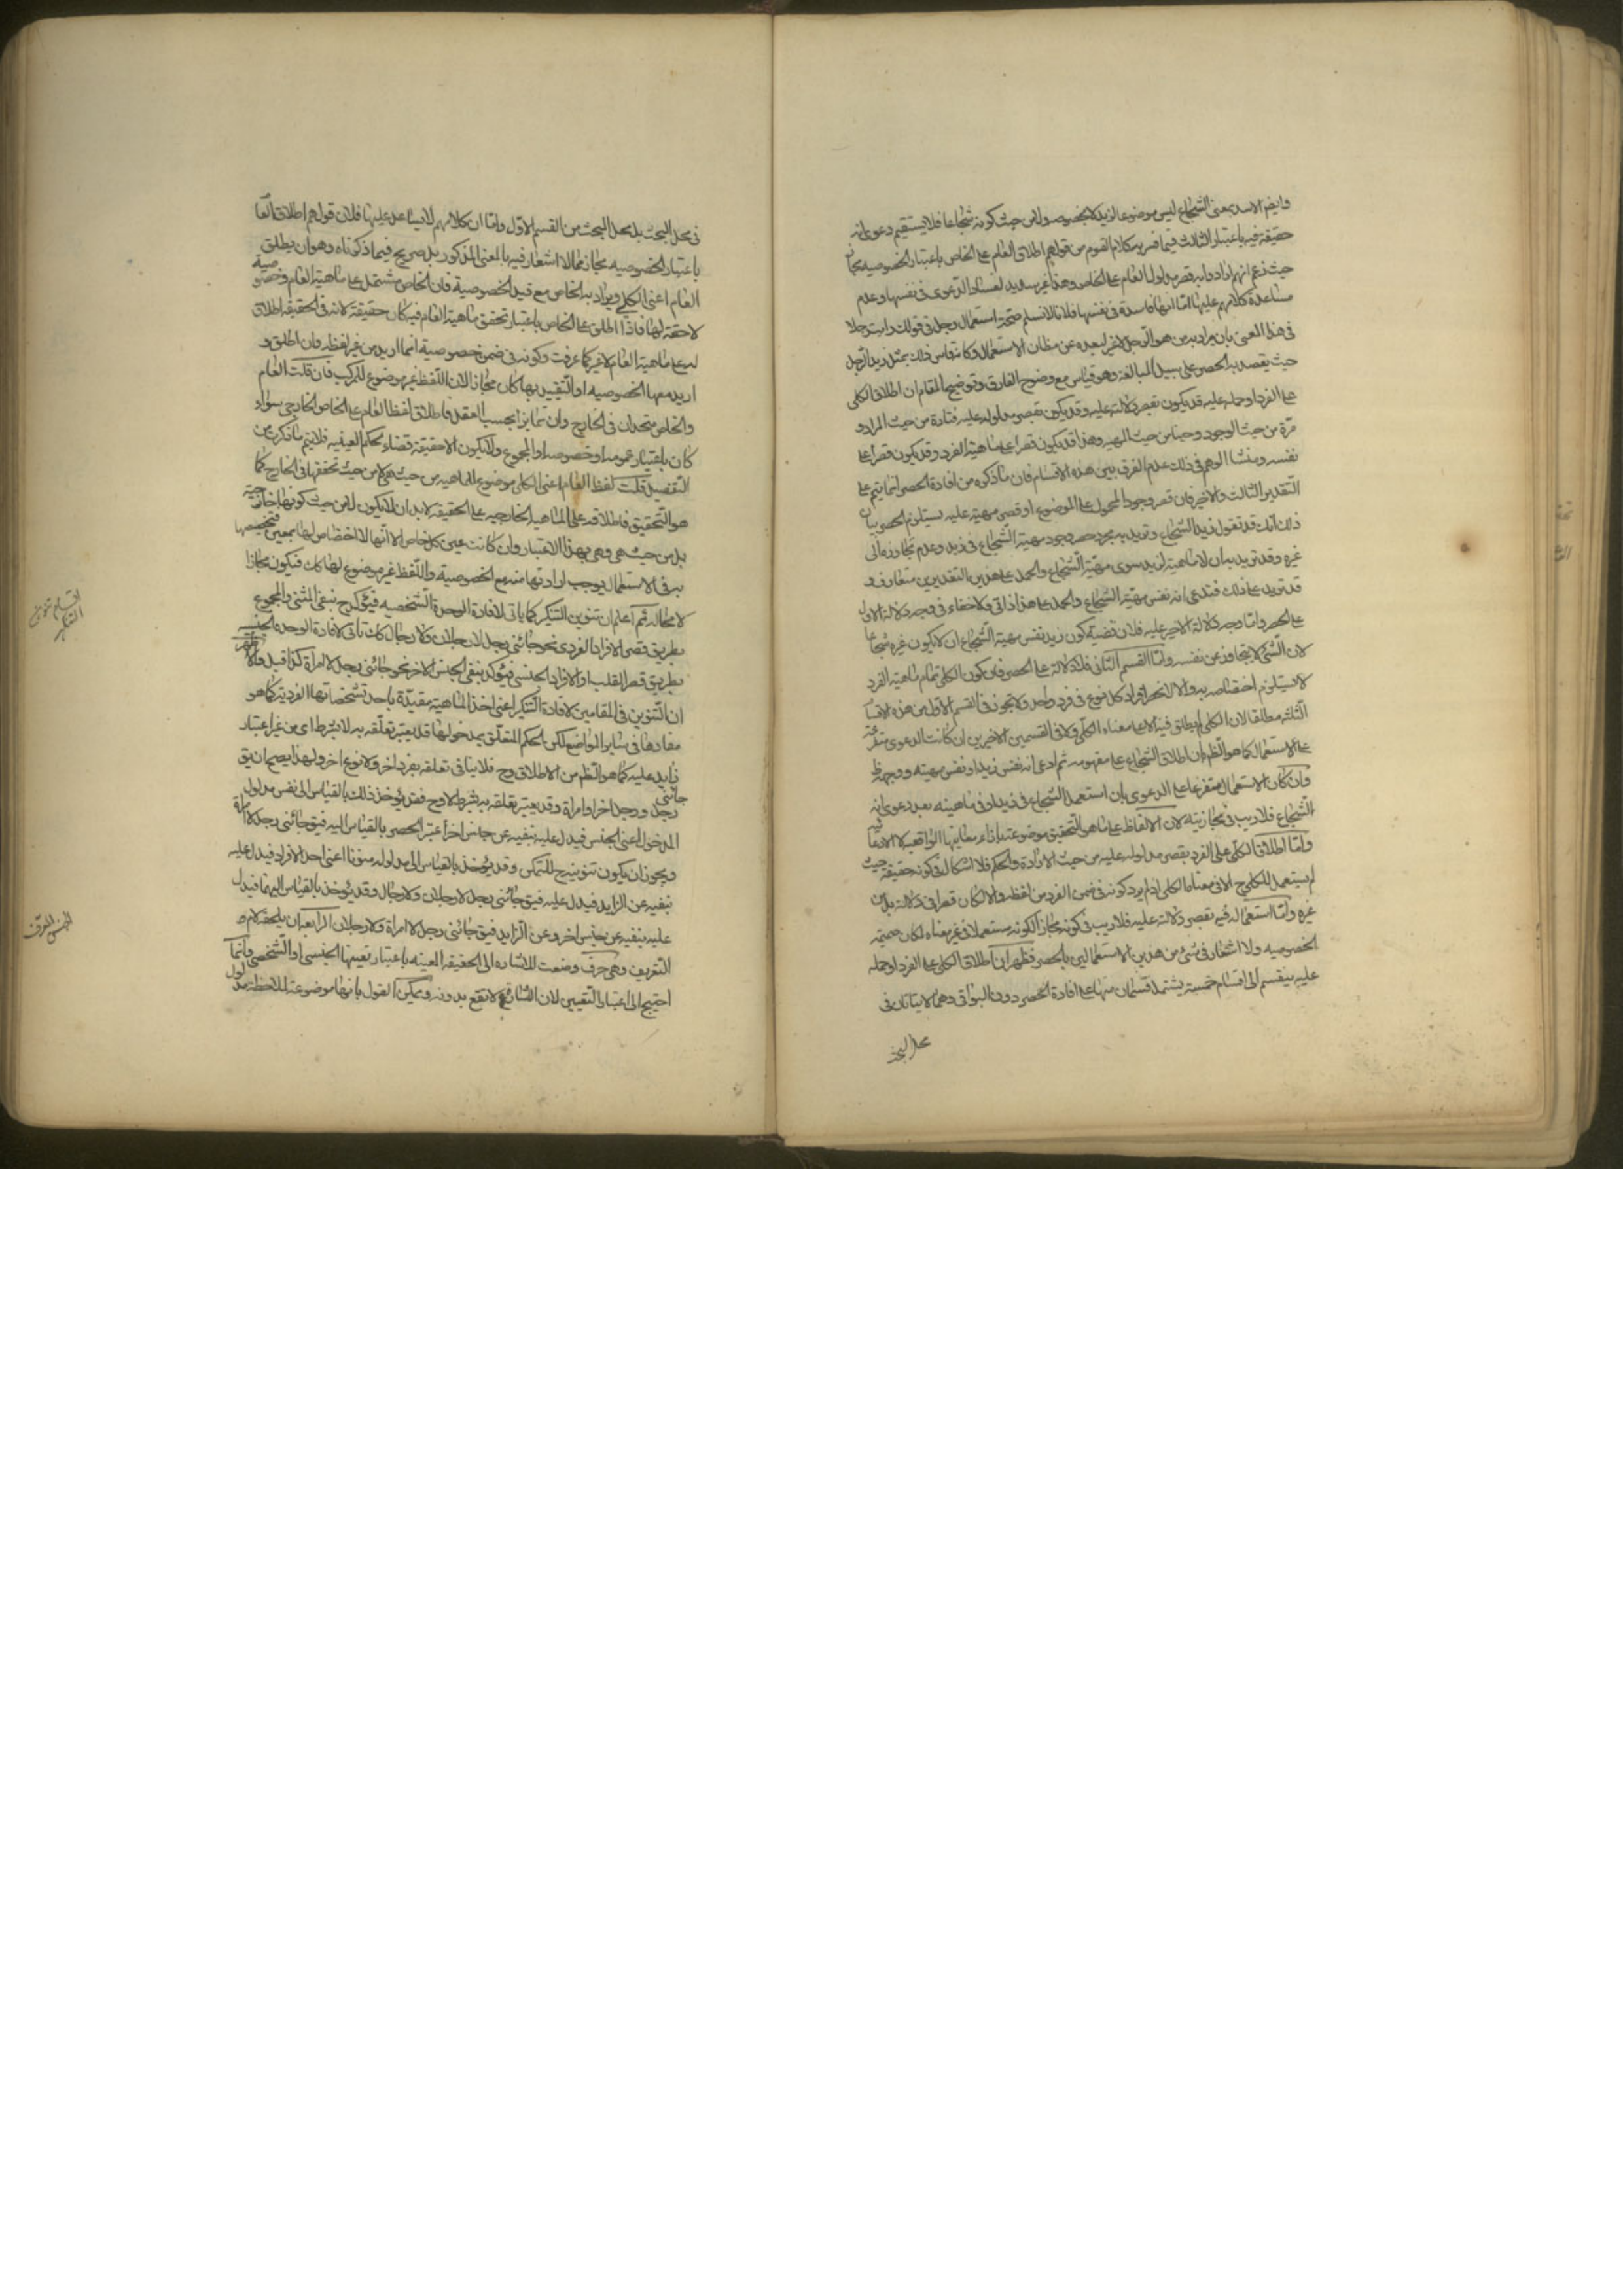 وايضا الاسد بمعنى الشجاع ليس موضوعا لزيد لا بخصوصه ولا من حيث كونه شجاعا فلا يستقيم دعوى انه
حقيقة فيه باعتبار الثالث فيما فسر به كلام القوم من قولهم اطلاق العام على الخاص باعتبار الخصوصيه مجاز
حيث زعم انهم ارادوا به قصر مدلول العام على الخاص وهذا غير سديد لفساد الدعوى فى نفسها وعدم
مساعدة كلامهم عليها اما انها فاسدة فى نفسها فلانا لا نسلم صحة استعمال رجل فى قولك رايت رجلا
فى هذا المعنى بان يراد به من هو الرجل لا غير لبعده عن مظان الاستعمال وكانه قاس ذلك بمثل زيد الرجل
حيث يقصد به الحصر على سبيل المبالغة وهو قياس مع وضوح الفارق وتوضيح المقام ان اطلاق الكلى
على الفرد وحمله عليه قد يكون بقصر دلالته عليه وقد يكون بقصر مدلوله عليه فتارة من حيث المراد و
مرة من حيث الوجود وحينا من حيث المهية وهذا قد يكون قصرا على ماهية الفرد وقد يكون قصرا على
نفسه ومنشا الوهم فى ذلك عدم الفرق بين هذه الاقسام فان ما ذكروه من افادة الحصر انما يتم على
التقدير الثالث والاخير فان قصر وجود المحمول على الموضوع او قصر مهيته عليه يستلزم الحصر وبيان
ذلك انك قد تقول زيد الشجاع وتريد به مجرد حصر وجود مهية الشجاع فى زيد وعدم تجاوزها الى
غيره وقد تريد بيان ان لا ماهية لزيد سوى مهية الشجاع والحمل على هذين التقديرين متعارف و
قد تريد على ذلك فتدعى انه نفس مهية الشجاع والحمل على هذا ذاتى ولا خفاء فى وجه دلالة الاول
على الحصر واما وجه دلالة الاخير عليه فلان قضية كون زيد نفس مهية الشجاع ان لا يكون غيره شجاعا
لان الشئ لا يتجاوز عن نفسه واما القسم الثانى فلا دلالة له على الحصر فان كون الكلى تمام ماهية الفرد
لا يستلزم اختصاصه به والا لانحصر افراد كل نوع فى فرد واحد ولا تجوز فى القسم الاول من هذه الاقسام
الثلثه مطلقا لان الكلى لم يطلق فيه الا على معناه الكلى ولا فى القسمين الاخيرين ان كانت الدعوى متفرعة
على الاستعمال كما هو الظ بان اطلاق الشجاع على مفهومه ثم ادعى انه نفس زيد او نفس مهيته ووجهه ظ
وان كان الاستعمال متفرعا على الدعوى بان استعمل الشجاع فى زيد او فى ماهيته بعد دعوى انه
الشجاع فلا ريب فى مجازيته لان الالفاظ على ما هو التحقيق موضوعة بازاء معانيها الواقعية لا الادعائيه
واما اطلاق الكلى على الفرد بقصر مدلوله عليه من حيث الارادة والحكم فلا اشكال فى كونه حقيقة حيث
لم يستعمل الكلى ح الا فى معناه الكلى اذ لم يرد كونه فى ضمن الفرد من لفظه والا لكان قصرا فى دلالته بل من
غيره واما استعماله فيه بقصر دلالته عليه فلا ريب فى كونه مجازا لكونه مستعملا فى غير معناه لمكان ضميمه
الخصوصيه ولا اشعار فى شئ من هذين الاستعمالين بالحصر فظهر ان اطلاق الكلى على الفرد او حمله
عليه ينقسم الى اقسام خمسة يشتمل قسمان منها على افادة الحصر دون البواقى وهما لا ياتيان فى
محل البحث
فى محل البحث بل محل البحث من القسم الاول واما ان كلامهم لا يساعد عليها فلان قولهم اطلاق العام
باعتبار الخصوصيه مجاز مما لا اشعار فيه بالمعنى المذكور بل صريح فيما ذكرناه وهو ان يطلق
العام اعنى الكلى ويراد به الخاص مع قيد الخصوصية فان الخاص مشتمل على ماهية العام وخصوصية
لاحقة لها فاذا اطلق على الخاص باعتبار تحقق ماهية العام فيه كان حقيقة لانه فى الحقيقه اطلاق
له على ماهية العام لا غير كما عرفت وكونه فى ضمن خصوصية انما اريد من غير لفظه وان اطلق و
اريد معها الخصوصيه او التقييد بها كان مجازا لان اللفظ غير موضوع للمركب فان قلت العام
والخاص متحدان فى الخارج وان تمايزا بحسب العقل فاطلاق لفظ العام على الخاص الخارجى سواء
كان باعتبار عمومه او خصوصه او المجموع ولا يكون الا حقيقة قضاء لحكم العينيه فلا يتم ما ذكر من
التفصيل قلت لفظ العام اعنى الكلى موضوع للماهيه من حيث هى لا من حيث تحققها فى الخارج كما
هو التحقيق فاطلاقه على الماهية الخارجيه على الحقيقة لا بد ان لا يكون من حيث كونها خارجية
بل من حيث هى وهى بهذا الاعتبار وان كانت عين كل خاص الا انها لا اختصاص لها بمعين فتخصيصها
به فى الاستعمال يوجب ارادتها منه مع الخصوصية واللفظ غير موضوع لها كك فيكون مجازا
لا محاله ثم اعلم ان تنوين التنكير كما ياتى لافادة الوحدة الشخصيه فيؤكد ح بنفى المثنى والمجموع
بطريق قصر الافراد الفردى نحو جائنى رجل لا رجلان ولا رجال كك تاتى لافادة الوحده الجنسيه
بطريق قصر القلب او الافراد الجنسى فيؤكد بنفى الجنس الاخر نحو جائنى رجل لا امراة كذا قيل والاظهر
ان التنوين فى المقامين لافادة التنكير اعنى اخذ الماهية مقيدة باحد تشخصاتها الفردية كما هو
مفادها فى ساير المواضع لكن الحكم المتعلق بمدخولها قد يعتبر تعلقه به لا بشرط اى من غير اعتبار
زايد عليه كما هو الظ من الاطلاق وح فلا ينافى تعلقه بفرد اخر ولا نوع اخر ولهذا يصح ان يق جائنى
رجل ورجل اخر او امراة وقد يعتبر تعلقه به بشرط لا وح فقد يؤخذ ذلك بالقياس الى نفس مدلول
المدخول اعنى الجنس فيدل عليه بنفيه عن جنس اخر اعتبر الحصر بالقياس اليه فيق جائنى رجل لا امراة
ويجوز ان يكون تنوينه ح للتمكن وقد يؤخذ بالقياس الى مدلوله منونا اعنى احد الافراد فيدل عليه
بنفيه عن الزايد فيدل عليه فيق جائنى رجل لا رجلان ولا رجال وقد يؤخذ بالقياس اليهما فيدل
عليه بنفيه عن جنس اخر وعن الزايد فيق جائنى رجل لا امراة ولا رجلان الرابع ان يلحقه لام
التعريف وهى حرف وضعت للاشاره الى الحقيقه المعينه باعتبار تعينها الجنسى او الشخصى وانما
احتيج الى اعتبار التعيين لان الاشارة لا تقع بدونه ويمكن القول بانها موضوعة لملاحظة مدلول
اقسام تنوين
التنكير
الجنس المعرف